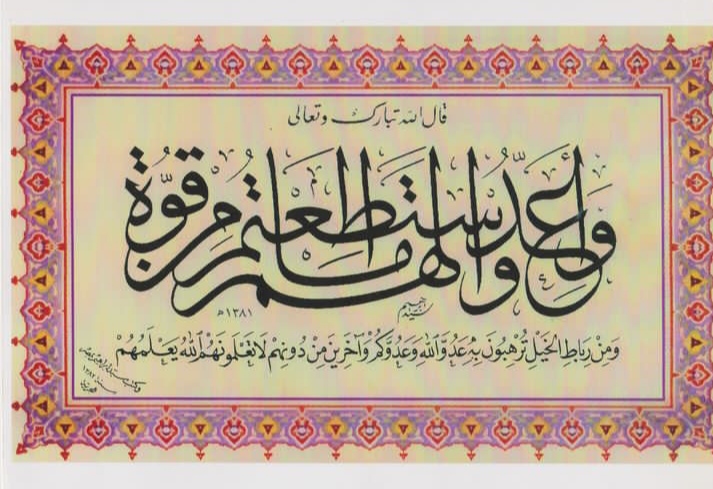 قال الله تبارك وتعالى
وَأَعِدُّوا لَهُم مَّا اسْتَطَعْتُم مِّن قُوَّةٍ
١٣٨١هـ
سيد إبراهيم
وَمِنْ رِبَاطِ الخَيْلِ تُرْهِبُونَ بِهِ عَدُوَّ اللهِ وَعَدُوَّكُمْ وَآخَرِينَ مِنْ دُونِهِمْ لَا تَعْلَمُونَهُمُ اللهُ يَعْلَمُهُمْ